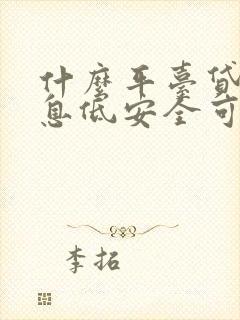 什麼平臺貸
息低安全可
李拓